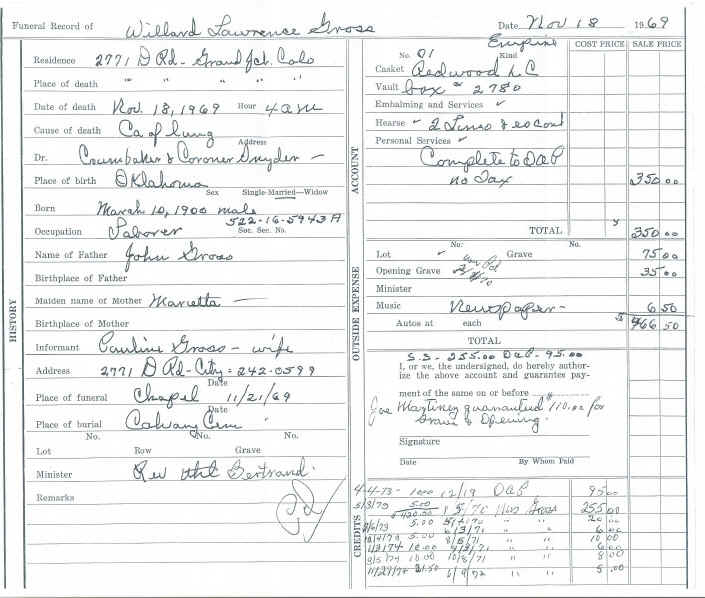 Funeral Record of Willard Lawrence Gross Date Nov 18 1969
Residence 2771 D Rd - Grand Jct. Colo
Place of death " " " " "
Date of death Nov. 18, 1969 Hour 4 am
Cause of death Ca of lung
Address
Dr. & Coroner Snyder -
Place of birth Oklahoma
Sex Single-Married-Widow
Born March 10, 1900 male
522-16-5943 A
Occupation Laborer Soc. Sec. No.
Name of Father John Gross
Birthplace of Father
Maiden name of Mother Marietta -
Birthplace of Mother
Informant Pauline Gross - wife
Address 2771 D Rd - City = 242-0599
Date
Place of funeral Chapel 11/21/69
Date
Place of burial Calvary Cem
No. No. No.
Lot Row Grave
Minister Rev Bertrand.
Remarks
Pd
HISTORY
ACCOUNT
COST PRICE SALE PRICE
Empire
No. 01 Kind
Casket Redwood L C
Vault box # 2780
Embalming and Services ✓
Hearse ✓ 2 Limo & escort
Personal Services ✓
Complete to OAP
no Tax 350 00
TOTAL $ 350 00
OUTSIDE EXPENSE
No. No.
Lot ✓ Grave 75 00
Opening Grave 35 00
Minister
Music Newspaper - 6 50
Autos at each $ 466 50
TOTAL
S.S - 255.00 OAP - 95.00
I, or we, the undersigned, do hereby author-
ize the above account and guarantee pay-
ment of the same on or before $
Joe Martinez guaranteed 110.00 for
Grave & Opening.
Signature
Date By Whom Paid
CREDITS
4-4-73- 10.00 12/19 OAP 95.00
5/3/73 5.00 1/5/70 Mrs Gross 255.00
5.00 " " 20.00
5.00 " " 10.00
11/3/74 10.00 " "
9/5/74 10.00 10/8/71 " " 8.00
11/21/74 31.50 " " 5.00